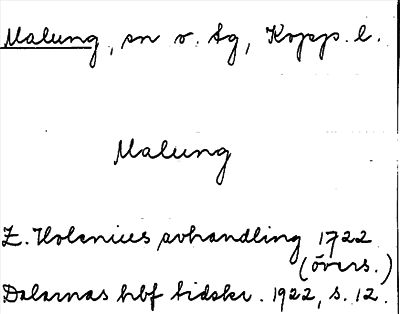 Malung, sn v. tg, Kopp. l.
Malung
Z. Holenius avhandling 1722
(övers.)
Dalarnas hbf tidskr. 1922, s. 12.